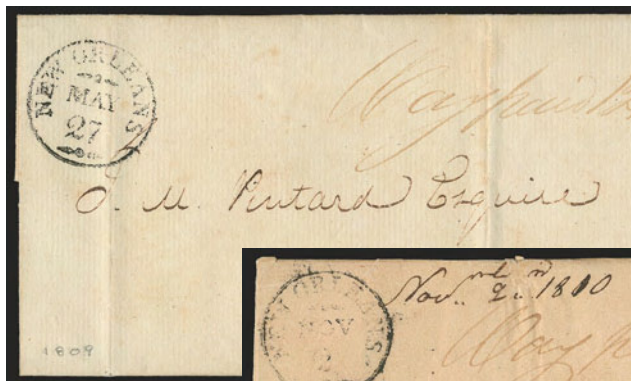 NEW ORLEANS
MAY
27
Way paid
J. M. Pintard Esquire
1809
NEW ORLEANS
NOV
2
Novmb 2nd 1810
Way p